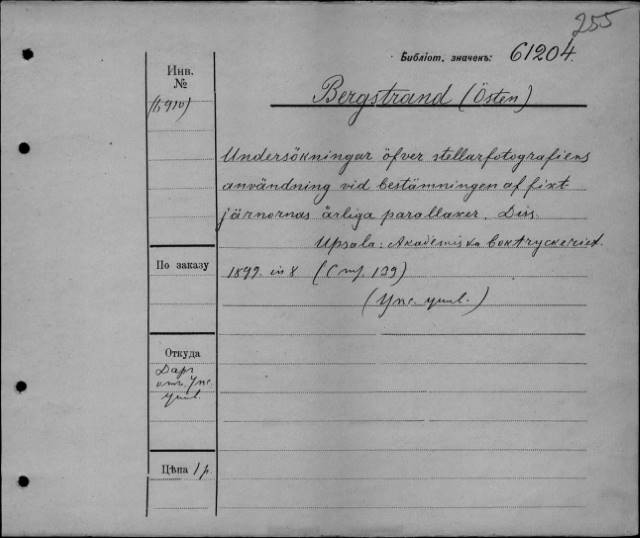 255
Библіот. значекъ: 61204.
Инв.
№
(Б910)
Bergstrand (Östen)
Undersökningar öfver stellarfotografiens
användning vid bestämningen af fixt
järnornas årliga parallaxer. Diss.
Upsala: Akademiska boktryckeriet.
По заказу
1899. in 8 (Стр. 139)
(Упс. унив.)
Откуда
Даръ
отъ Упс.
унив.
Цѣна 1 р.